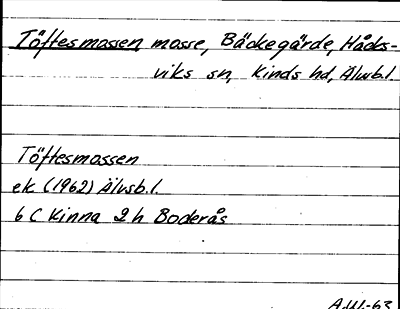 Töftesmossen, mosse, Bäckegärde, Håcks-
viks sn, Kinds hd, Älvsb.l.
Töftesmossen
ek (1962) Älvsb.l.
6 C Kinna 2 h Boderås